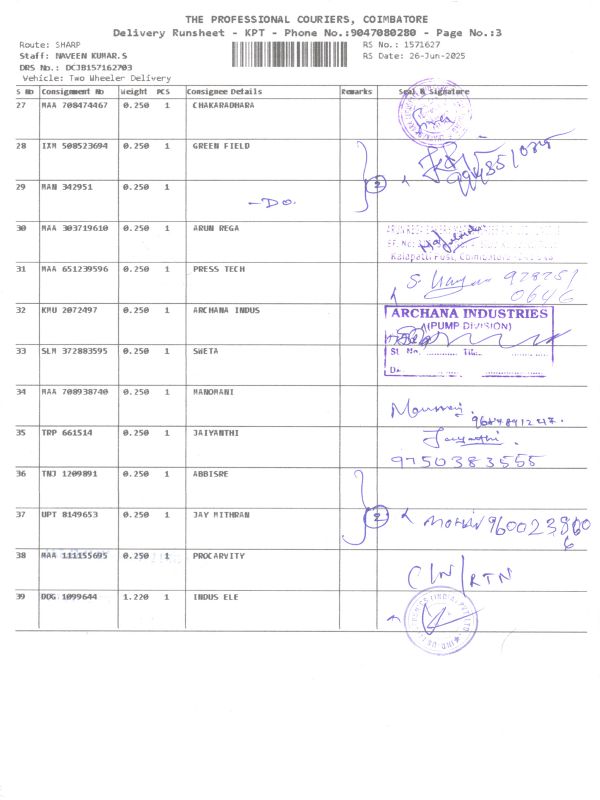 THE PROFESSIONAL COURIERS, COIMBATORE
Delivery Runsheet - KPT - Phone No.:9047080280 - Page No.:3
Route: SHARP RS No.: 1571627
Staff: NAVEEN KUMAR.S RS Date: 26-Jun-2025
DRS No.: DCJB157162703
Vehicle: Two Wheeler Delivery
S No Consignment No Weight PCS Consignee Details Remarks Seal & Signature
27 MAA 708474467 0.250 1 CHAKARADHARA
28 IXM 508523694 0.250 1 GREEN FIELD
29 MAN 342951 0.250 1
2
-Do.
30 MAA 303719610 0.250 1 ARUN REGA
Kalapatti Post, Coimbatore
31 MAA 651239596 0.250 1 PRESS TECH
0646
32 KMU 2072497 0.250 1 ARCHANA INDUS
ARCHANA INDUSTRIES
(PUMP DIVISION)
33 SLM 372883595 0.250 1 SWETA
Sl. No.
34 MAA 708938740 0.250 1 MANOMANI
35 TRP 661514 0.250 1 JAIYANTHI
Jaiyanthi.
9750383555
36 TNJ 1209891 0.250 1 ABBISRE
37 UPT 8149653 0.250 1 JAY MITHRAN
2
38 MAA 111155695 0.250 1 PROCARVITY
C/N/RTN
39 DOG 1099644 1.220 1 INDUS ELE